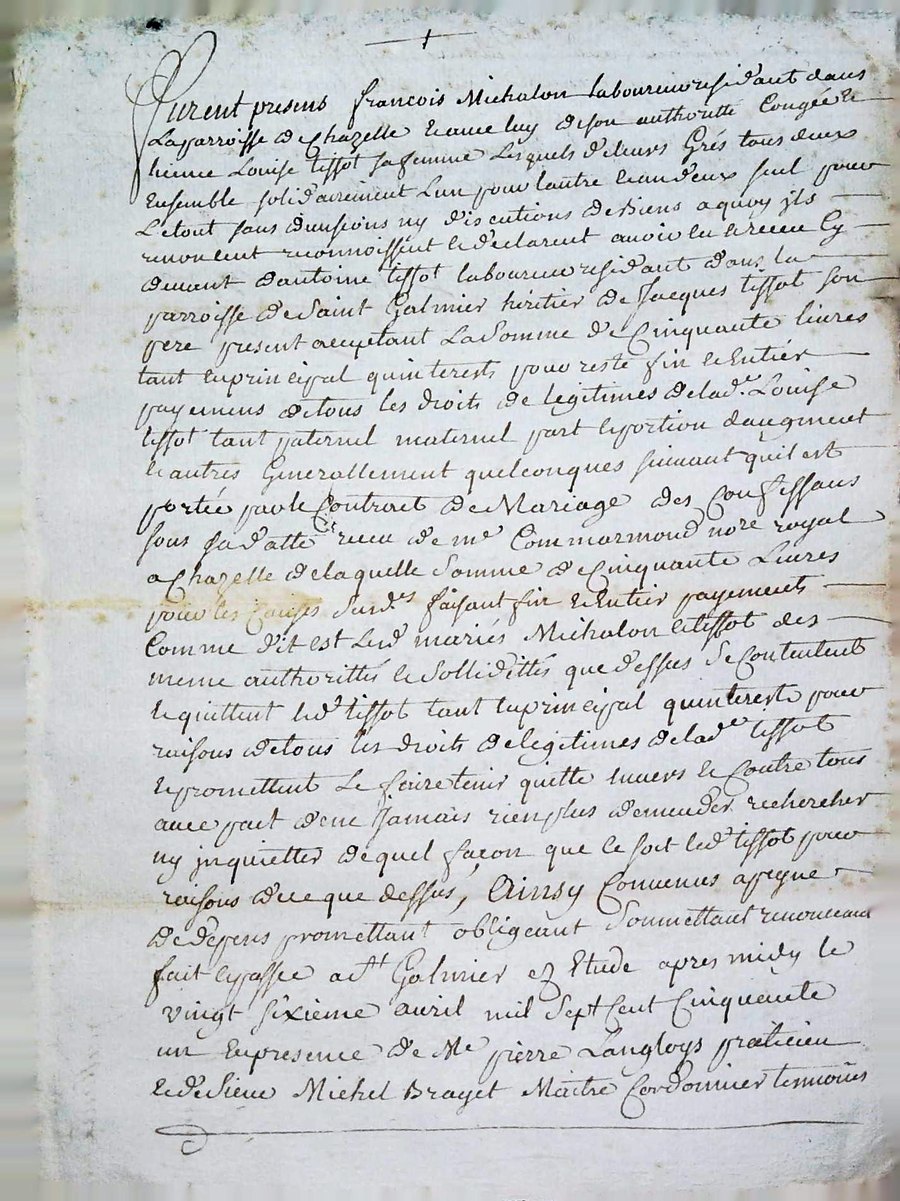 furent presens francois Michalon laboureur residant dans
La parroisse de Chazelle et avec luy de son authoritté Congée et
licence Louise tissot sa femme Lesquels de leurs Grés tous deux
Ensemble solidairement Lun pour lautre et un d'eux seul pour
Letout sans divisions ny discutions de Biens a quoy jls
renoncent reconnoissent et declarent avoir eu et receu Cy
devant d'antoine tissot laboureur residant dans la
parroisse de Saint Galmier héritier de Jacques tissot son
pere present acceptant La Somme de Cinquante livres
tant en principal qu'interests pour reste fin et Entiér
payemens de tous les droits de legitimes de lade. Louise
tissot tant paternel maternel part et portion d'augment
et autres Generallement quelconques suivant qu'il est
portée par le Contract de Mariage des Confessans
sous sa datte receu de me Commarmond nore royal
a Chazelle de laquelle Somme de Cinquante Livres
pour les Causes susdes faisant fin et Entier payements
Comme dit est Lesd mariés Michalon et tissot des
meme authorittés et Sollidittés que dessus se Contentent
et quittent led tissot tant en principal qu'interests pour
raisons de tous les droits de legitimes de lade tissot
et promettent Le faire tenir quitte envers et Contre tous
avec pact de ne Jamais rien plus demender rechercher
ny jnquietter de quel façon que ce soit led tissot pour
raisons de ce que dessus, Ainsy Convenus a peyne
de depens promettant obligeant Soumettant renonceant
fait et passée a St Galmier ez Etude apres midy le
vingt sixieme avril mil Sept Cent Cinquente
un En presence de Me pierre Langloys praticien
et de Sieur Michel Brayet Maitre Cordonnier temoins